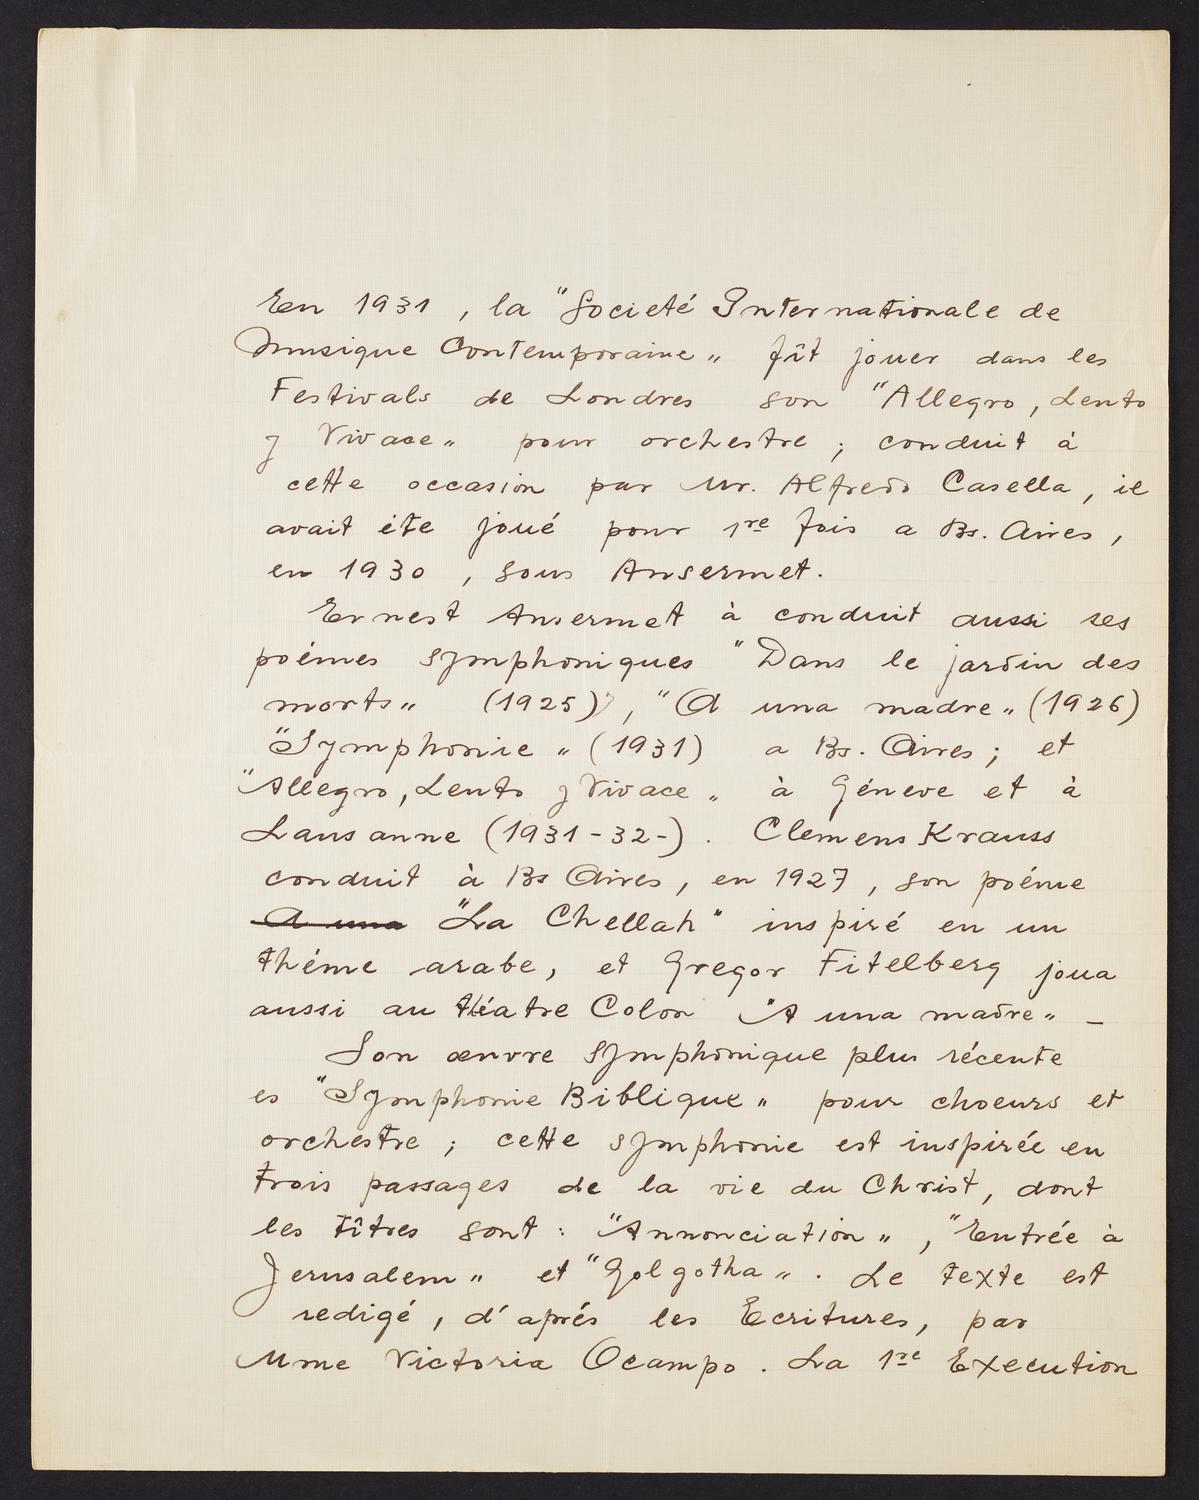 En 1931, la "Societé Internationale de
Musique Contemporaine„ fît jouer dans les
Festivals de Londres son "Allegro, Lento
y Vivace„ pour orchestre ; conduit à
cette occasion par Mr. Alfredo Casella, il
avait éte joué pour 1re fois a Bs. Aires,
en 1930, sous Ansermet.
Ernest Ansermet à conduit aussi ses
poémes symphoniques "Dans le jardin des
morts„ (1925), "A una madre„ (1926)
"Symphonie„ (1931) a Bs. Aires ; et
"Allegro, Lento y Vivace„ à Géneve et à
Lausanne (1931-32-). Clemens Krauss
conduit à Bs Aires, en 1927, son poéme
A una "La Chellah" inspiré en un
théme arabe, et Gregor Fitelberg joua
aussi au téatre Colon "A una madre„ _
Son œuvre symphonique plus récente
es "Symphonie Biblique„ pour choeurs et
orchestre ; cette symphonie est inspirée en
trois passages de la vie du Christ, dont
les tîtres sont : "Annonciation„, "Entrée à
Jerusalem„ et "Golgotha„. Le texte est
redigé, d'aprés les Ecritures, par
Mme Victoria Ocampo. La 1re Execution